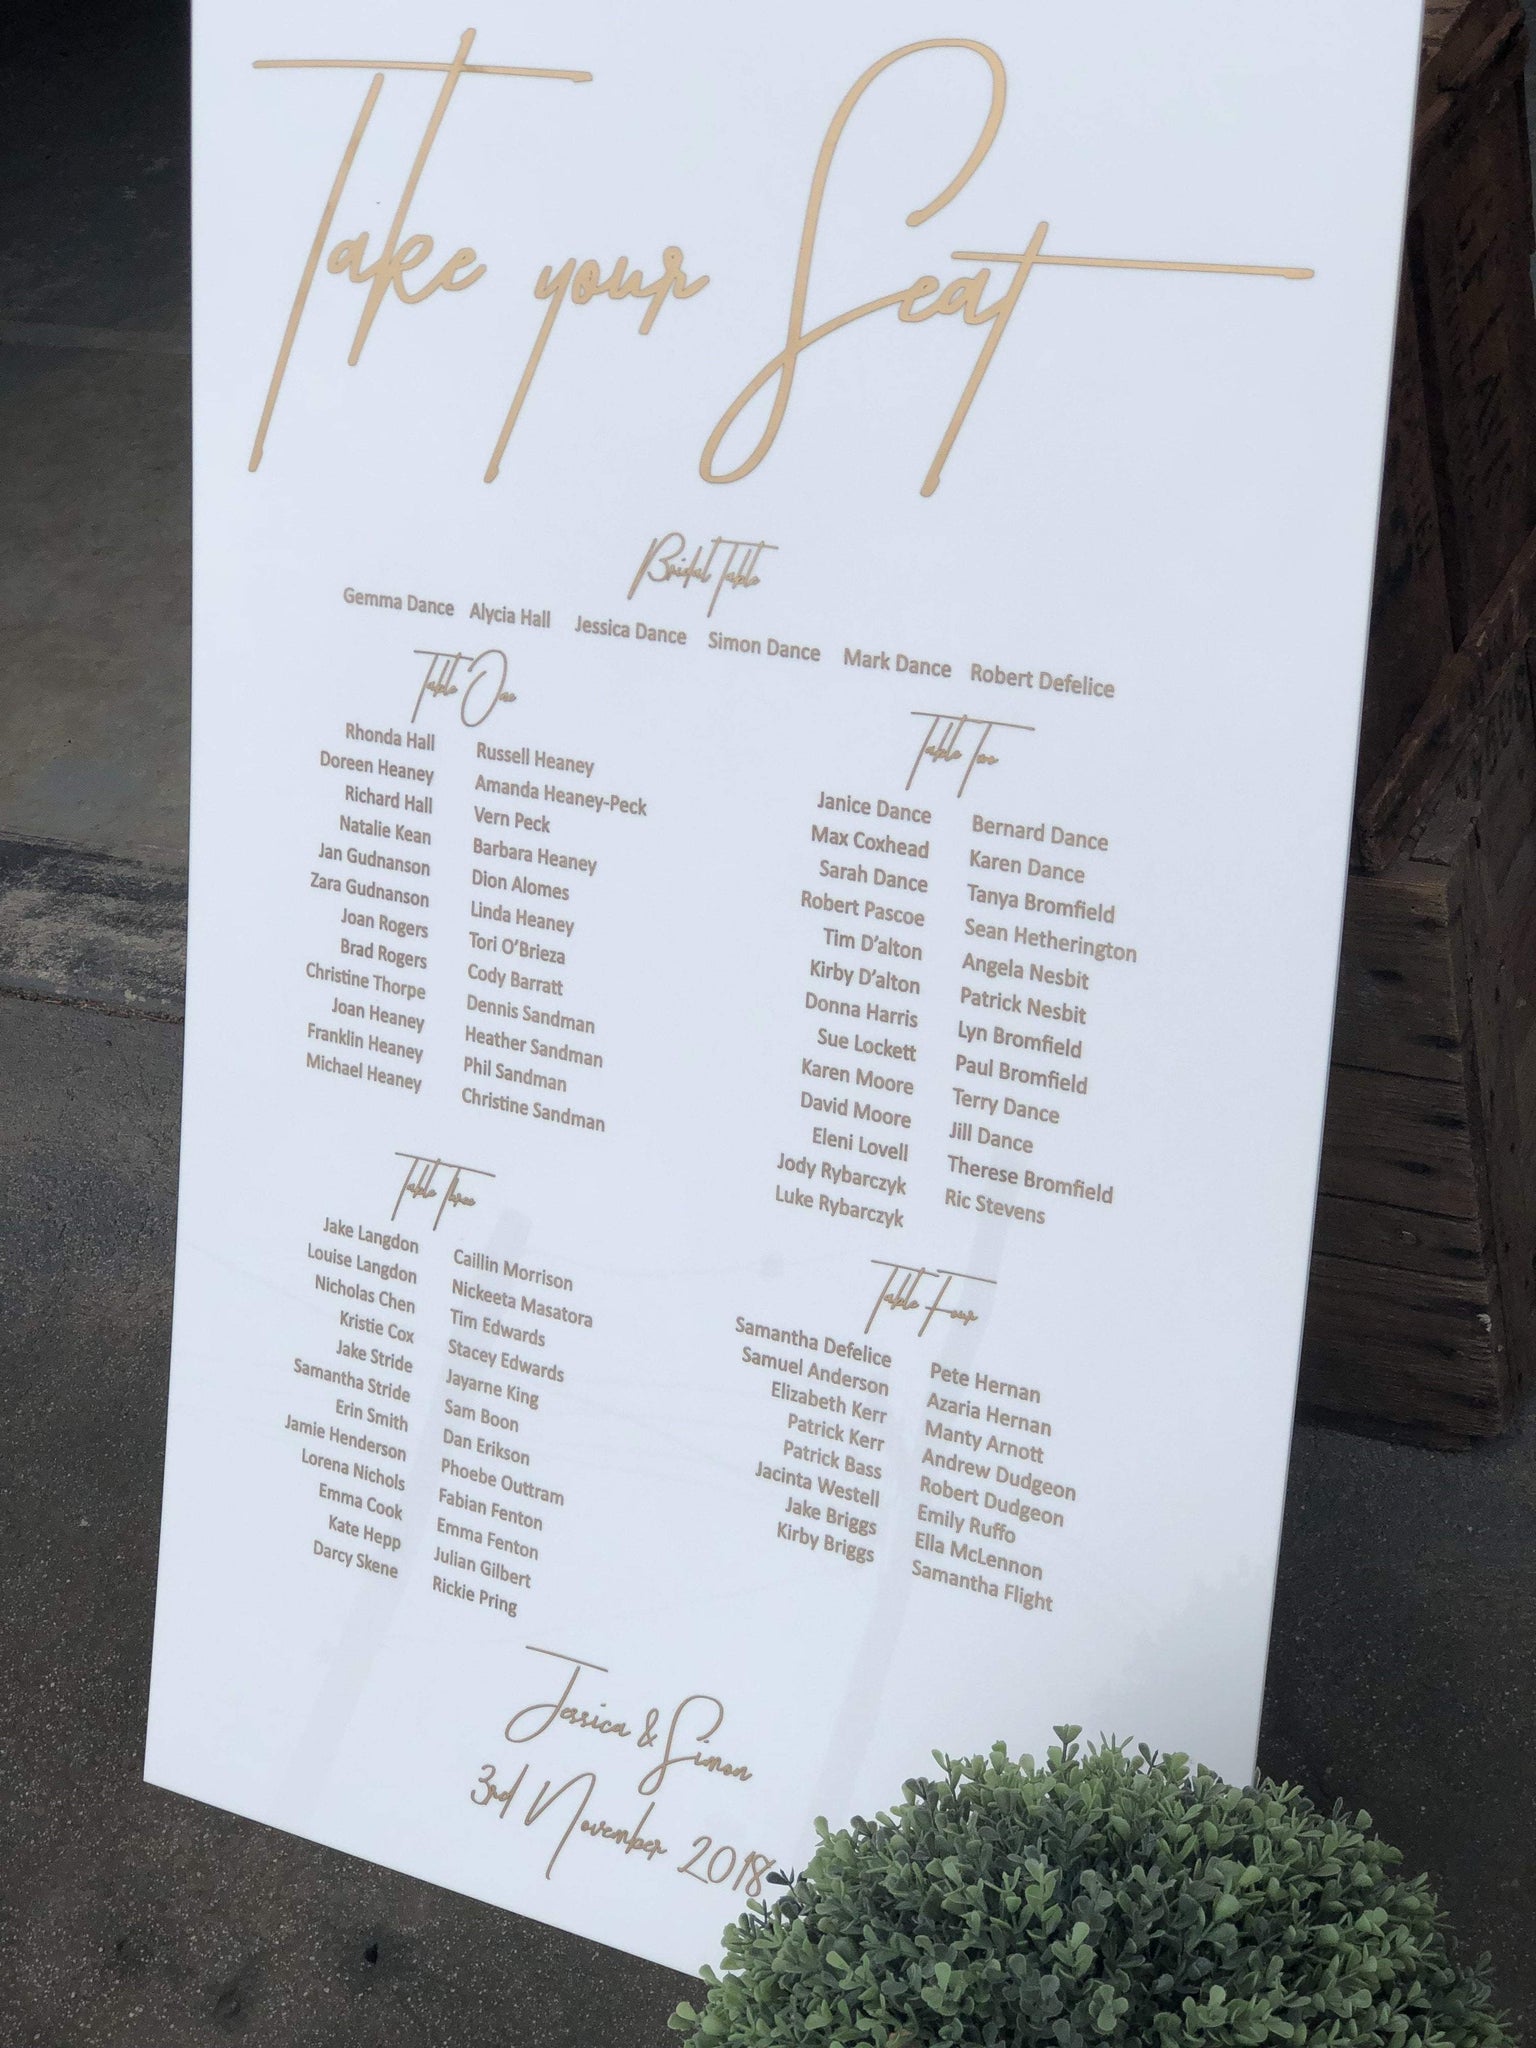 Take your Seat
Bridal Table
Gemma Dance Alycia Hall Jessica Dance Simon Dance Mark Dance Robert Defelice
Table One
Rhonda Hall Russell Heaney
Doreen Heaney Amanda Heaney-Peck
Richard Hall Vern Peck
Natalie Kean Barbara Heaney
Jan Gudnanson Dion Alomes
Zara Gudnanson Linda Heaney
Joan Rogers Tori O'Brieza
Brad Rogers Cody Barratt
Christine Thorpe Dennis Sandman
Joan Heaney Heather Sandman
Franklin Heaney Phil Sandman
Michael Heaney Christine Sandman
Table Two
Janice Dance Bernard Dance
Max Coxhead Karen Dance
Sarah Dance Tanya Bromfield
Robert Pascoe Sean Hetherington
Tim D'alton Angela Nesbit
Kirby D'alton Patrick Nesbit
Donna Harris Lyn Bromfield
Sue Lockett Paul Bromfield
Karen Moore Terry Dance
David Moore Jill Dance
Eleni Lovell Therese Bromfield
Jody Rybarczyk Ric Stevens
Luke Rybarczyk
Table Three
Jake Langdon Caillin Morrison
Louise Langdon Nickeeta Masatora
Nicholas Chen Tim Edwards
Kristie Cox Stacey Edwards
Jake Stride Jayarne King
Samantha Stride Sam Boon
Erin Smith Dan Erikson
Jamie Henderson Phoebe Outtram
Lorena Nichols Fabian Fenton
Emma Cook Emma Fenton
Kate Hepp Julian Gilbert
Darcy Skene Rickie Pring
Table Four
Samantha Defelice Pete Hernan
Samuel Anderson Azaria Hernan
Elizabeth Kerr Manty Arnott
Patrick Kerr Andrew Dudgeon
Patrick Bass Robert Dudgeon
Jacinta Westell Emily Ruffo
Jake Briggs Ella McLennon
Kirby Briggs Samantha Flight
Jessica & Simon
3rd November 2018